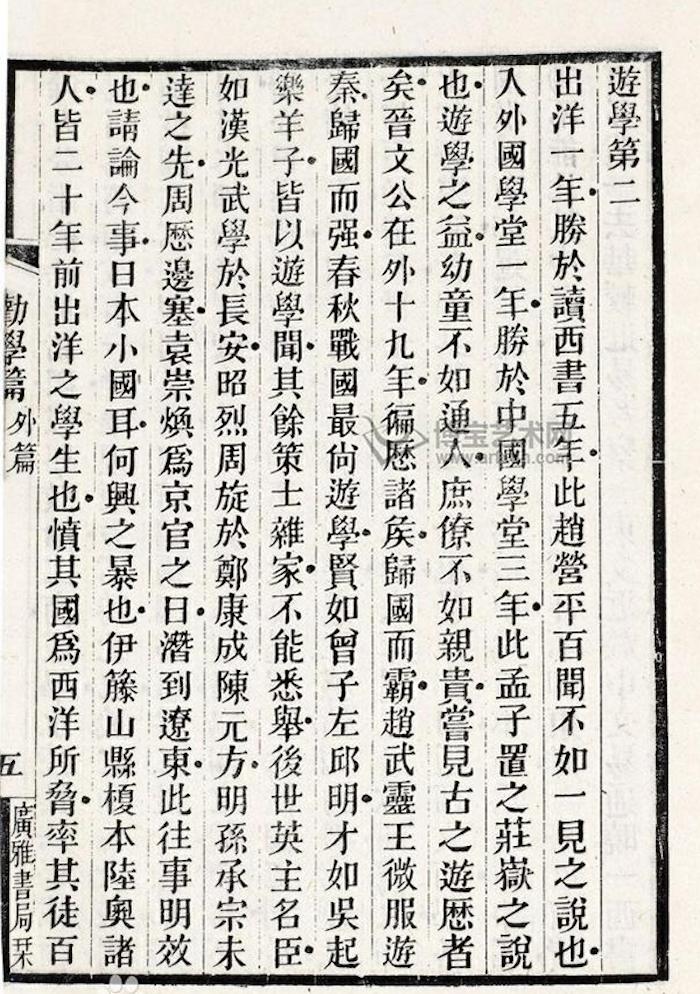 遊學第二
出洋一年勝於讀西書五年此趙營平百聞不如一見之說也
入外國學堂一年勝於中國學堂三年此孟子置之莊嶽之說
也遊學之益幼童不如通人庶僚不如親貴嘗見古之遊歷者
矣晉文公在外十九年徧歷諸矦歸國而霸趙武靈王微服遊
秦歸國而强春秋戰國最尙遊學賢如曾子左邱明才如吳起
樂羊子皆以遊學聞其餘策士雜家不能悉舉後世英主名臣
如漢光武學於長安昭烈周旋於鄭康成陳元方明孫承宗未
達之先周歷邊塞袁崇煥爲京官之日潛到遼東此往事明效
也請論今事日本小國耳何興之暴也伊籐山縣榎本陸奧諸
人皆二十年前出洋之學生也憤其國爲西洋所脅率其徒百
勸學篇 外篇
五
廣雅書局栞
博宝艺术网